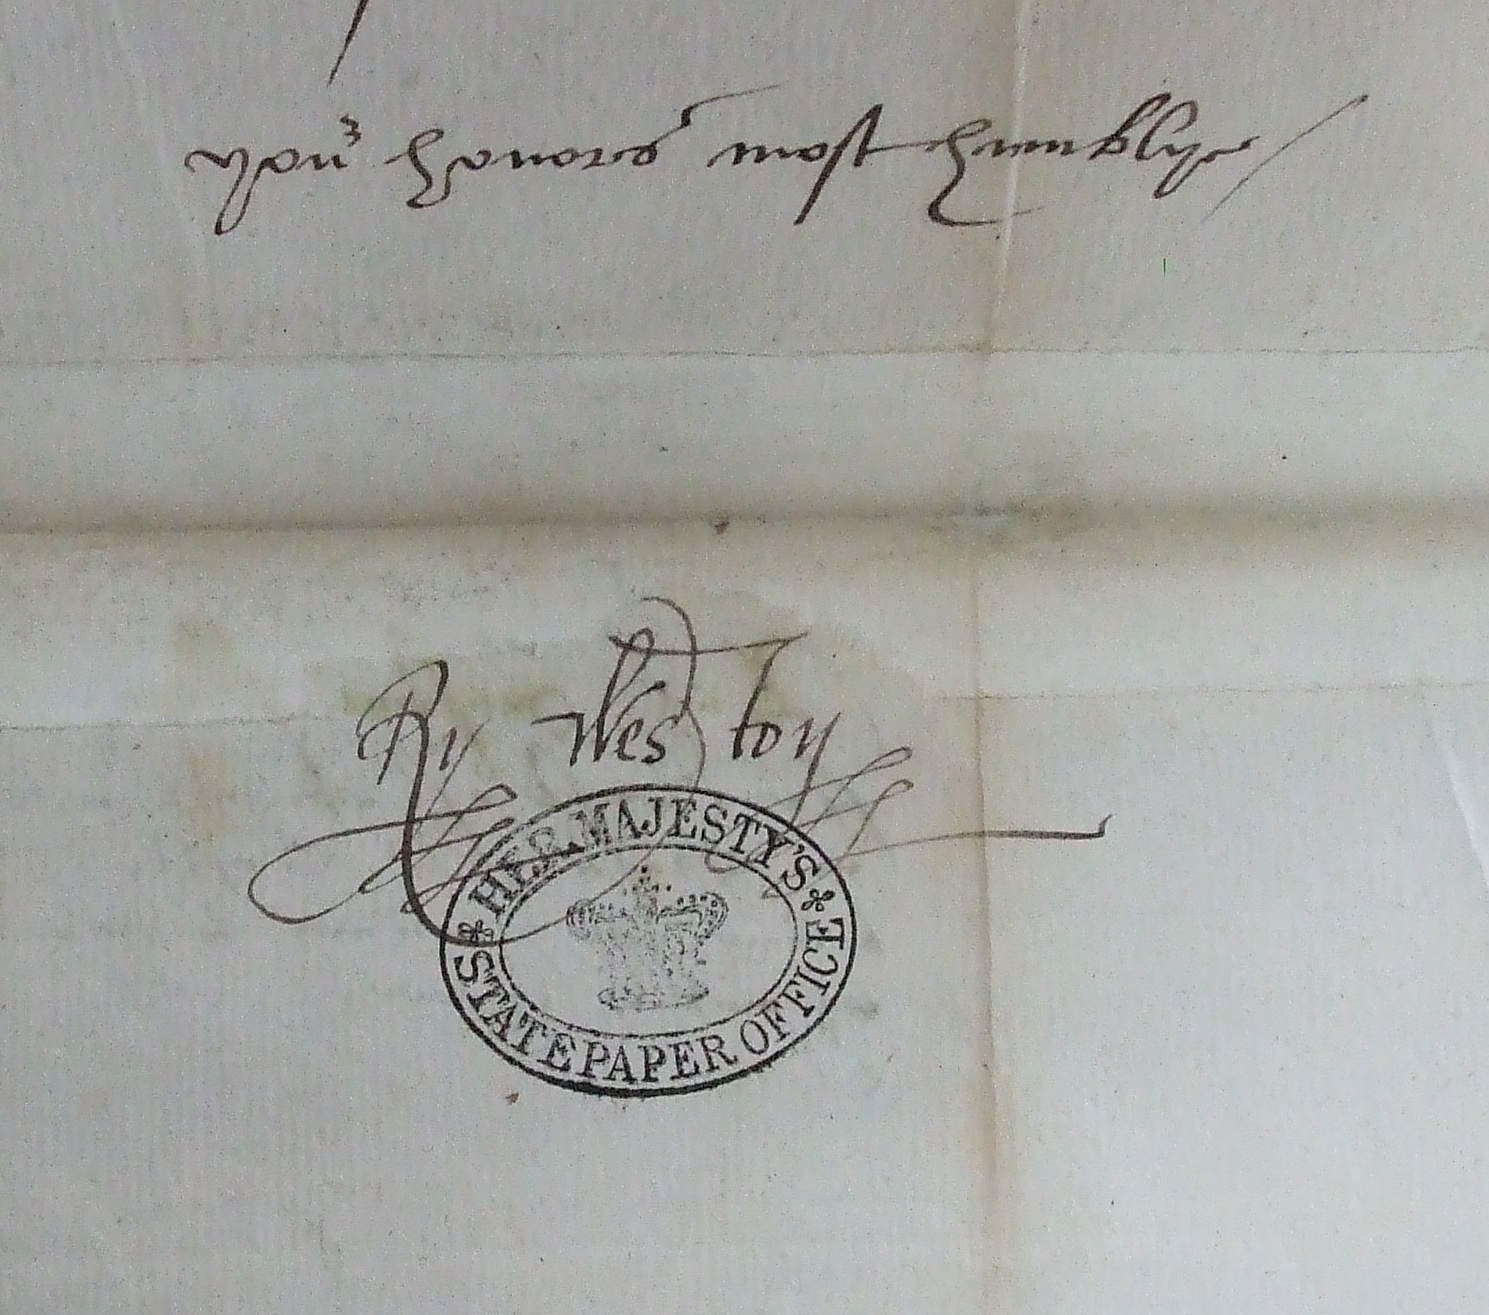 you^r honors most humblye
Ry Weston
HER MAJESTY'S
STATE PAPER OFFICE